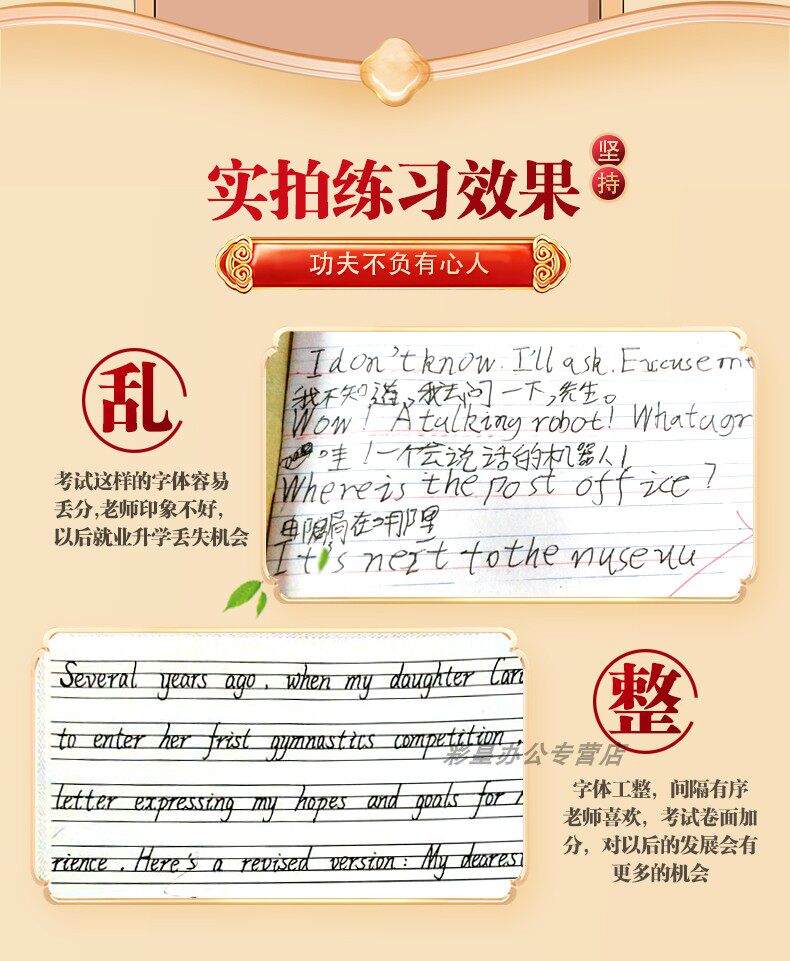 实拍练习效果
坚持
功夫不负有心人
乱
考试这样的字体容易
丢分,老师印象不好,
以后就业升学丢失机会
I don't know. I'll ask. Excuse me
我不知道,我去问一下,先生。
Wow! A talking robot! What a gr
哇!一个会说话的机器人!
Where is the post office?
邮局在哪里
It's next to the museuu
Several years ago, when my daughter Car
to enter her frist gymnastics competition,
letter expressing my hopes and goals for
rience. Here's a revised version: My dearest
彩星办公专营店
整
字体工整，间隔有序
老师喜欢，考试卷面加
分，对以后的发展会有
更多的机会